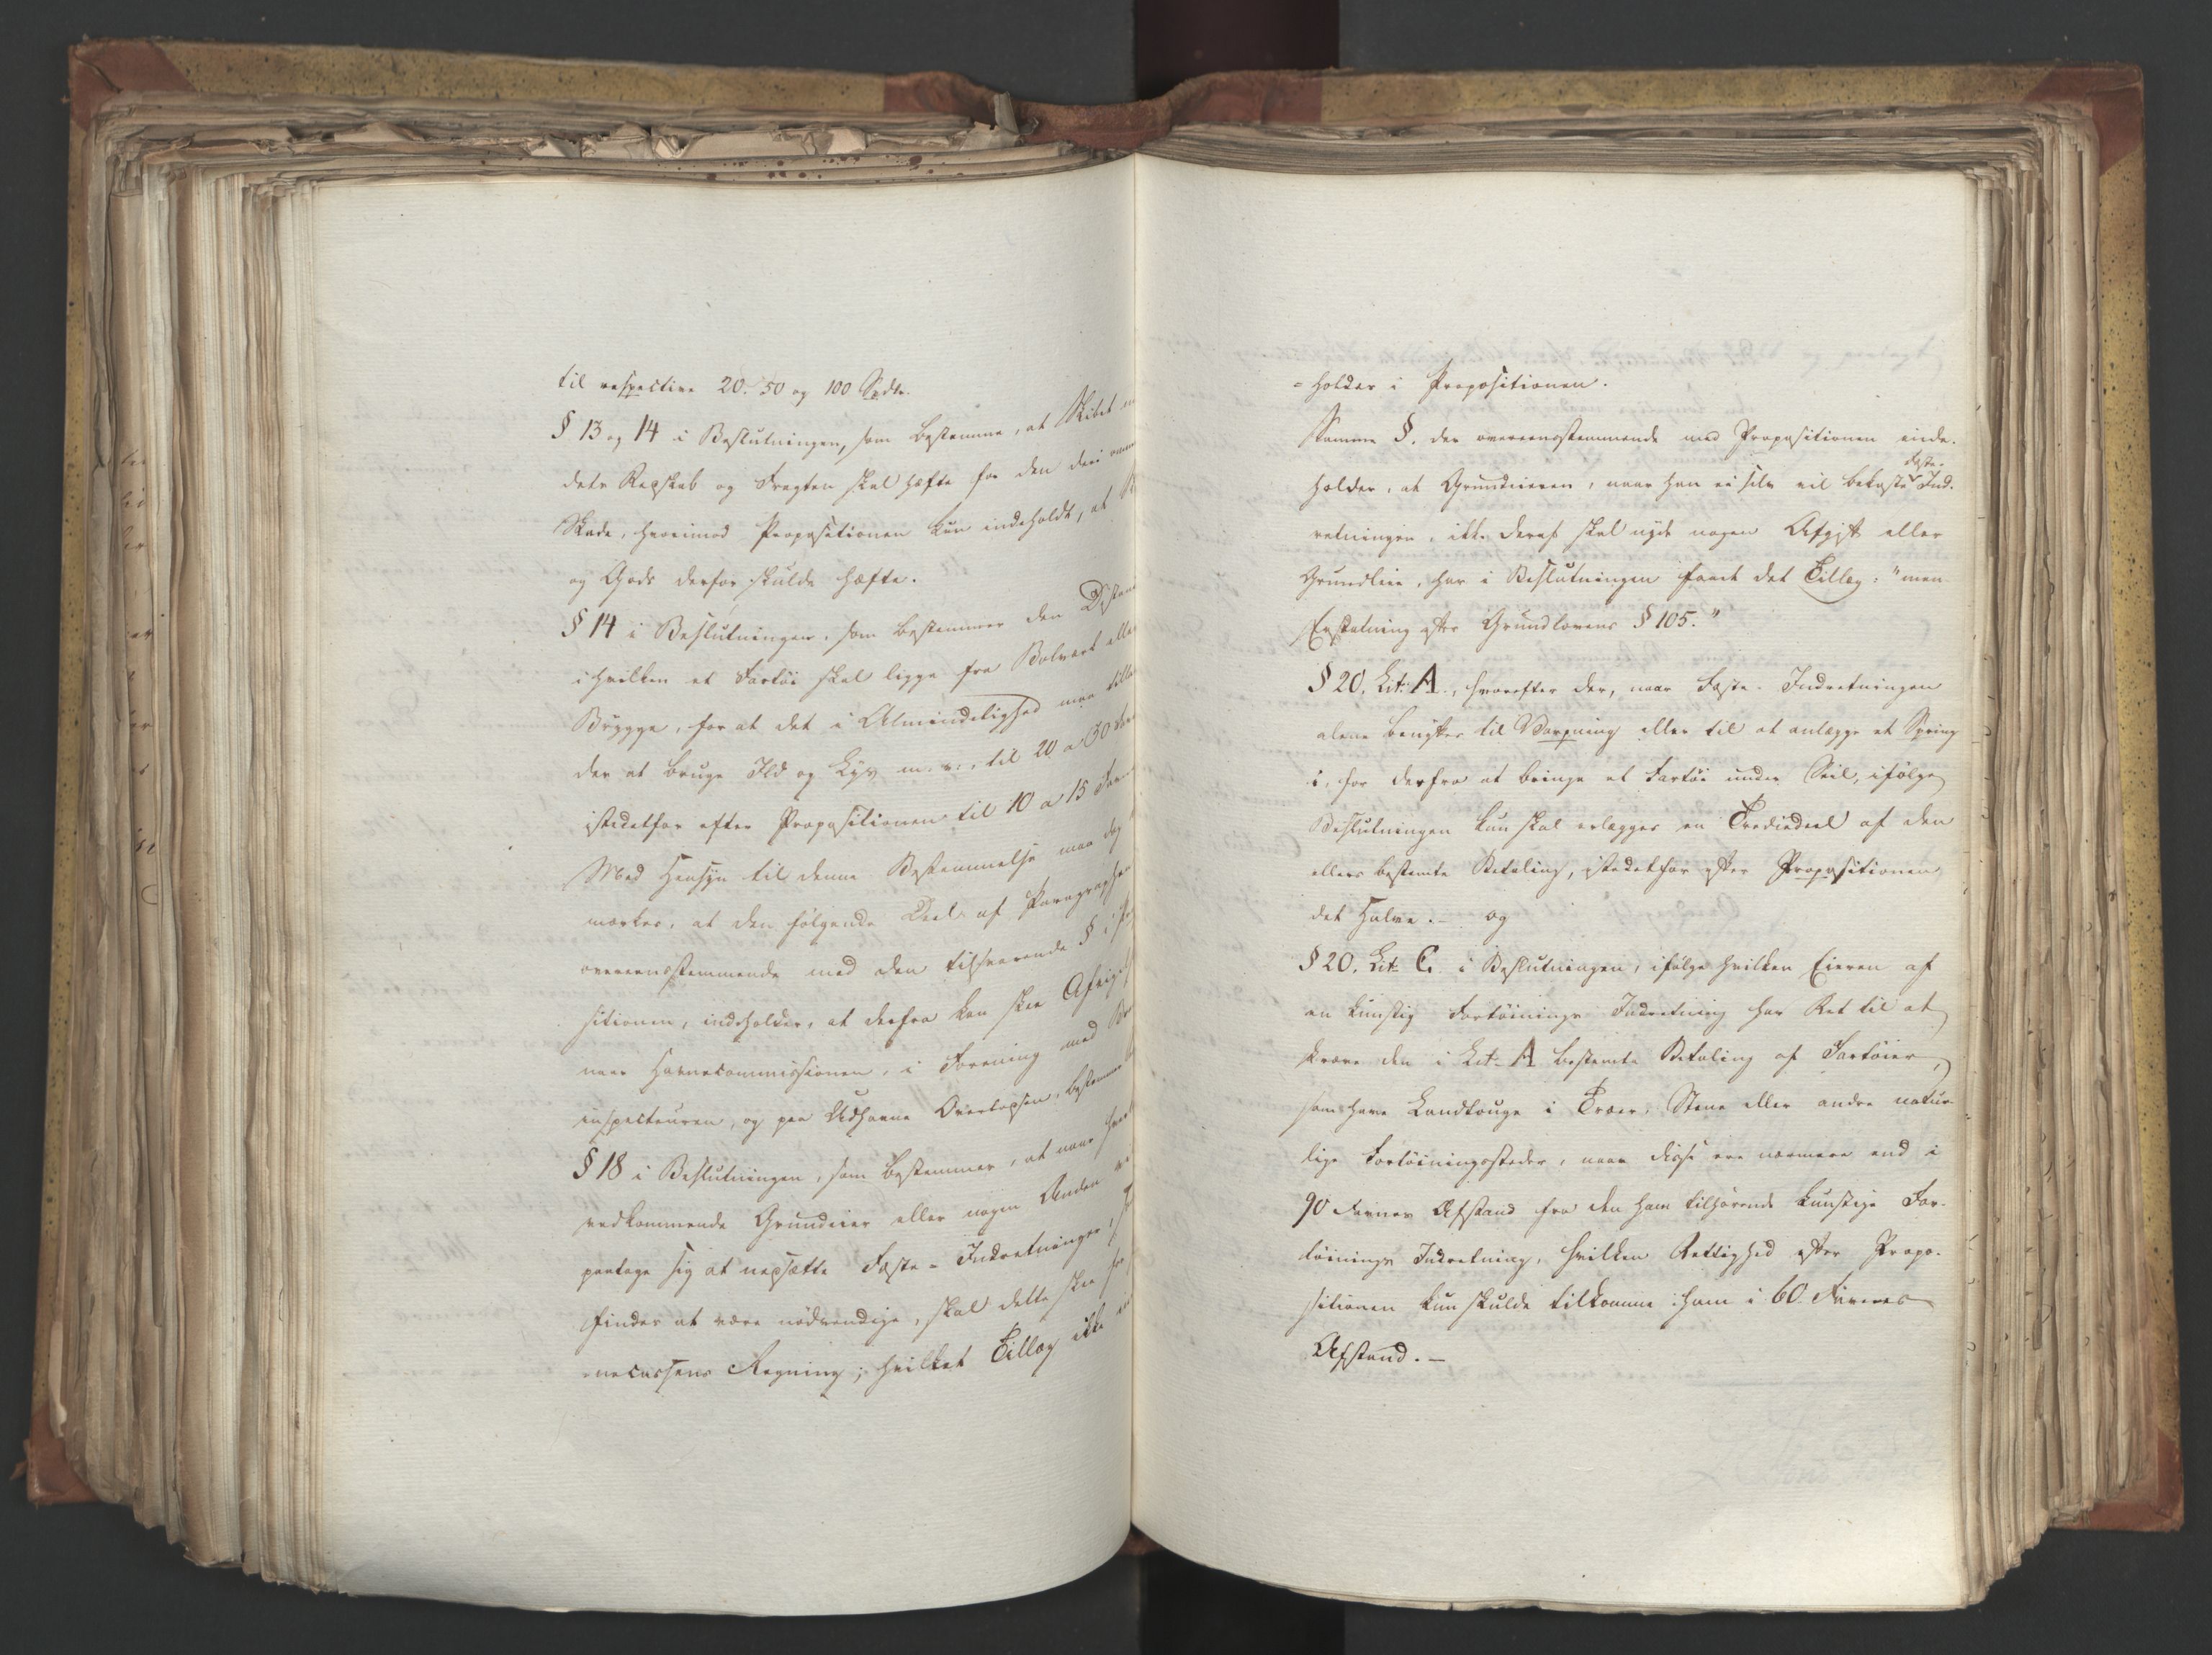 til respective 20. 50 og 100 Spdlr.
§ 13 og 14 i Beslutningen, som bestemme, at Skibet
dets Redskab og Fragten skal hæfte for den deri
Skade, hvorimod Propositionen kun indeholdt, at
og Gods derfor skulde hæfte.
§ 14 i Beslutningen, som bestemmer den
i hvilken et Fartöi skal ligge fra Bolverk eller
Brygge, for at det i Almindelighed maa
der at bruge Ild og Lys m. v., til 20 a 30
istedetfor efter Propositionen til 10 a 15
Med Hensyn til denne Bestemmelse maa dog
mærkes, at den følgende Deel af Paragraphen
overeensstemmende med den tilsvarende § i
sitionen, indeholder, at derfra kan skee
naar Havnecommissionen, i Forening med
inspecteuren, og paa Udhavne Overlodsen, bestemmer
§ 18 i Beslutningen, som bestemmer, at naar
vedkommende Grundeier eller nogen Anden
paatage sig at nedsætte Fæste-Indretninger,
findes at være nödvendige, skal dette skee
necassens Regning; hvilket Tillæg ikke
=holdes i Propositionen.
Samme §. der overeensstemmende med Propositionen inde-
holder, at Grundeieren, naar han ei selv vil bekoste Fæste-Ind-
retningen, ikke deraf skal nyde nogen Afgift eller
Grundleie, har i Beslutningen faaet det Tillæg: "men
Erstatning efter Grundlovens § 105."
§ 20. Lit: A., hvorefter der, naar Fæste-Indretningen
alene benyttes til Varpning eller til at anlægge et Spring
i, for derfra at bringe et Fartöi under Seil, ifölge
Beslutningen kun skal erlægges en Trediedeel af den
ellers bestemte Betaling, istedetfor efter Propositionen
det Halve. – og
§ 20. Lit: C. i Beslutningen, ifölge hvilken Eieren af
en kunstig Fortöinings Indretning har Ret til at
kræve den i Lit: A bestemte Betaling af Fartöier,
som have Landtouge i Træer, Stene eller andre natur-
lige Fortöiningssteder, naar disse ere nærmere end i
90 Favnes Afstand fra den ham tilhörende kunstige For-
töinings Indretning, hvilken Rettighed efter Propo-
sitionen kun skulde tilkomme ham i 60 Favnes
Afstand. –